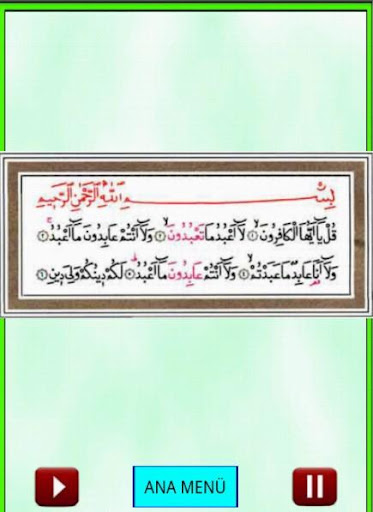 بِسْمِ اللّٰهِ الرَّحْمٰنِ الرَّحِيمِ
قُلْ يَٓا اَيُّهَا الْكَافِرُونَۙ ﴿١﴾ لَٓا اَعْبُدُ مَا تَعْبُدُونَۙ ﴿٢﴾ وَلَٓا اَنْتُمْ عَابِدُونَ مَٓا اَعْبُدُۚ ﴿٣﴾
وَلَٓا اَنَا۬ عَابِدٌ مَا عَبَدْتُمْۙ ﴿٤﴾ وَلَٓا اَنْتُمْ عَابِدُونَ مَٓا اَعْبُدُۜ ﴿٥﴾ لَكُمْ دِينُكُمْ وَلِيَ دِينِ ﴿٦﴾
ANA MENÜ